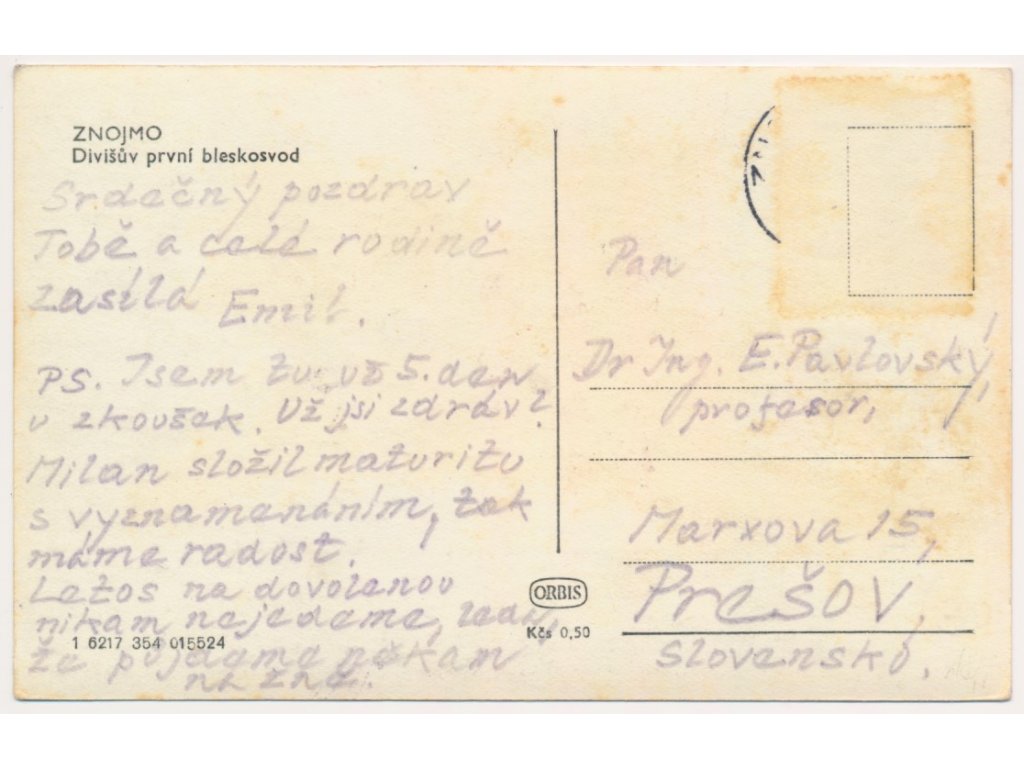 ZNOJMO
Divišův první bleskosvod
Srdečný pozdrav
Tobě a celé rodině
zasílá Emil.
PS. Jsem tu už 5. den
u zkoušek. Už jsi zdráv?
Milan složil maturitu
s vyznamenáním, tak
máme radost.
Letos na dovolenou
nikam nejedeme, leda,
že půjdeme někam
na žně.
1 6217 354 015524
ORBIS
Kčs 0,50
Pan
Dr Ing. E. Pavlovský,
profesor,
Marxova 15,
Prešov,
Slovensko.